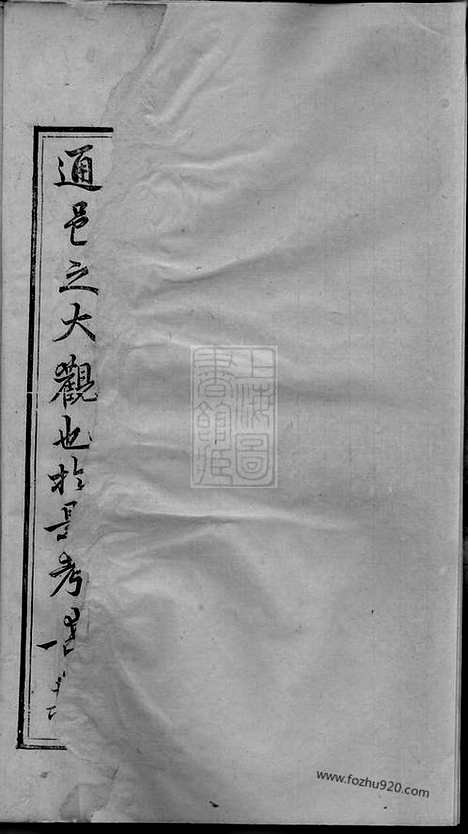 通邑之大觀也於是考
上海圖書館藏
www.fozhu920.com